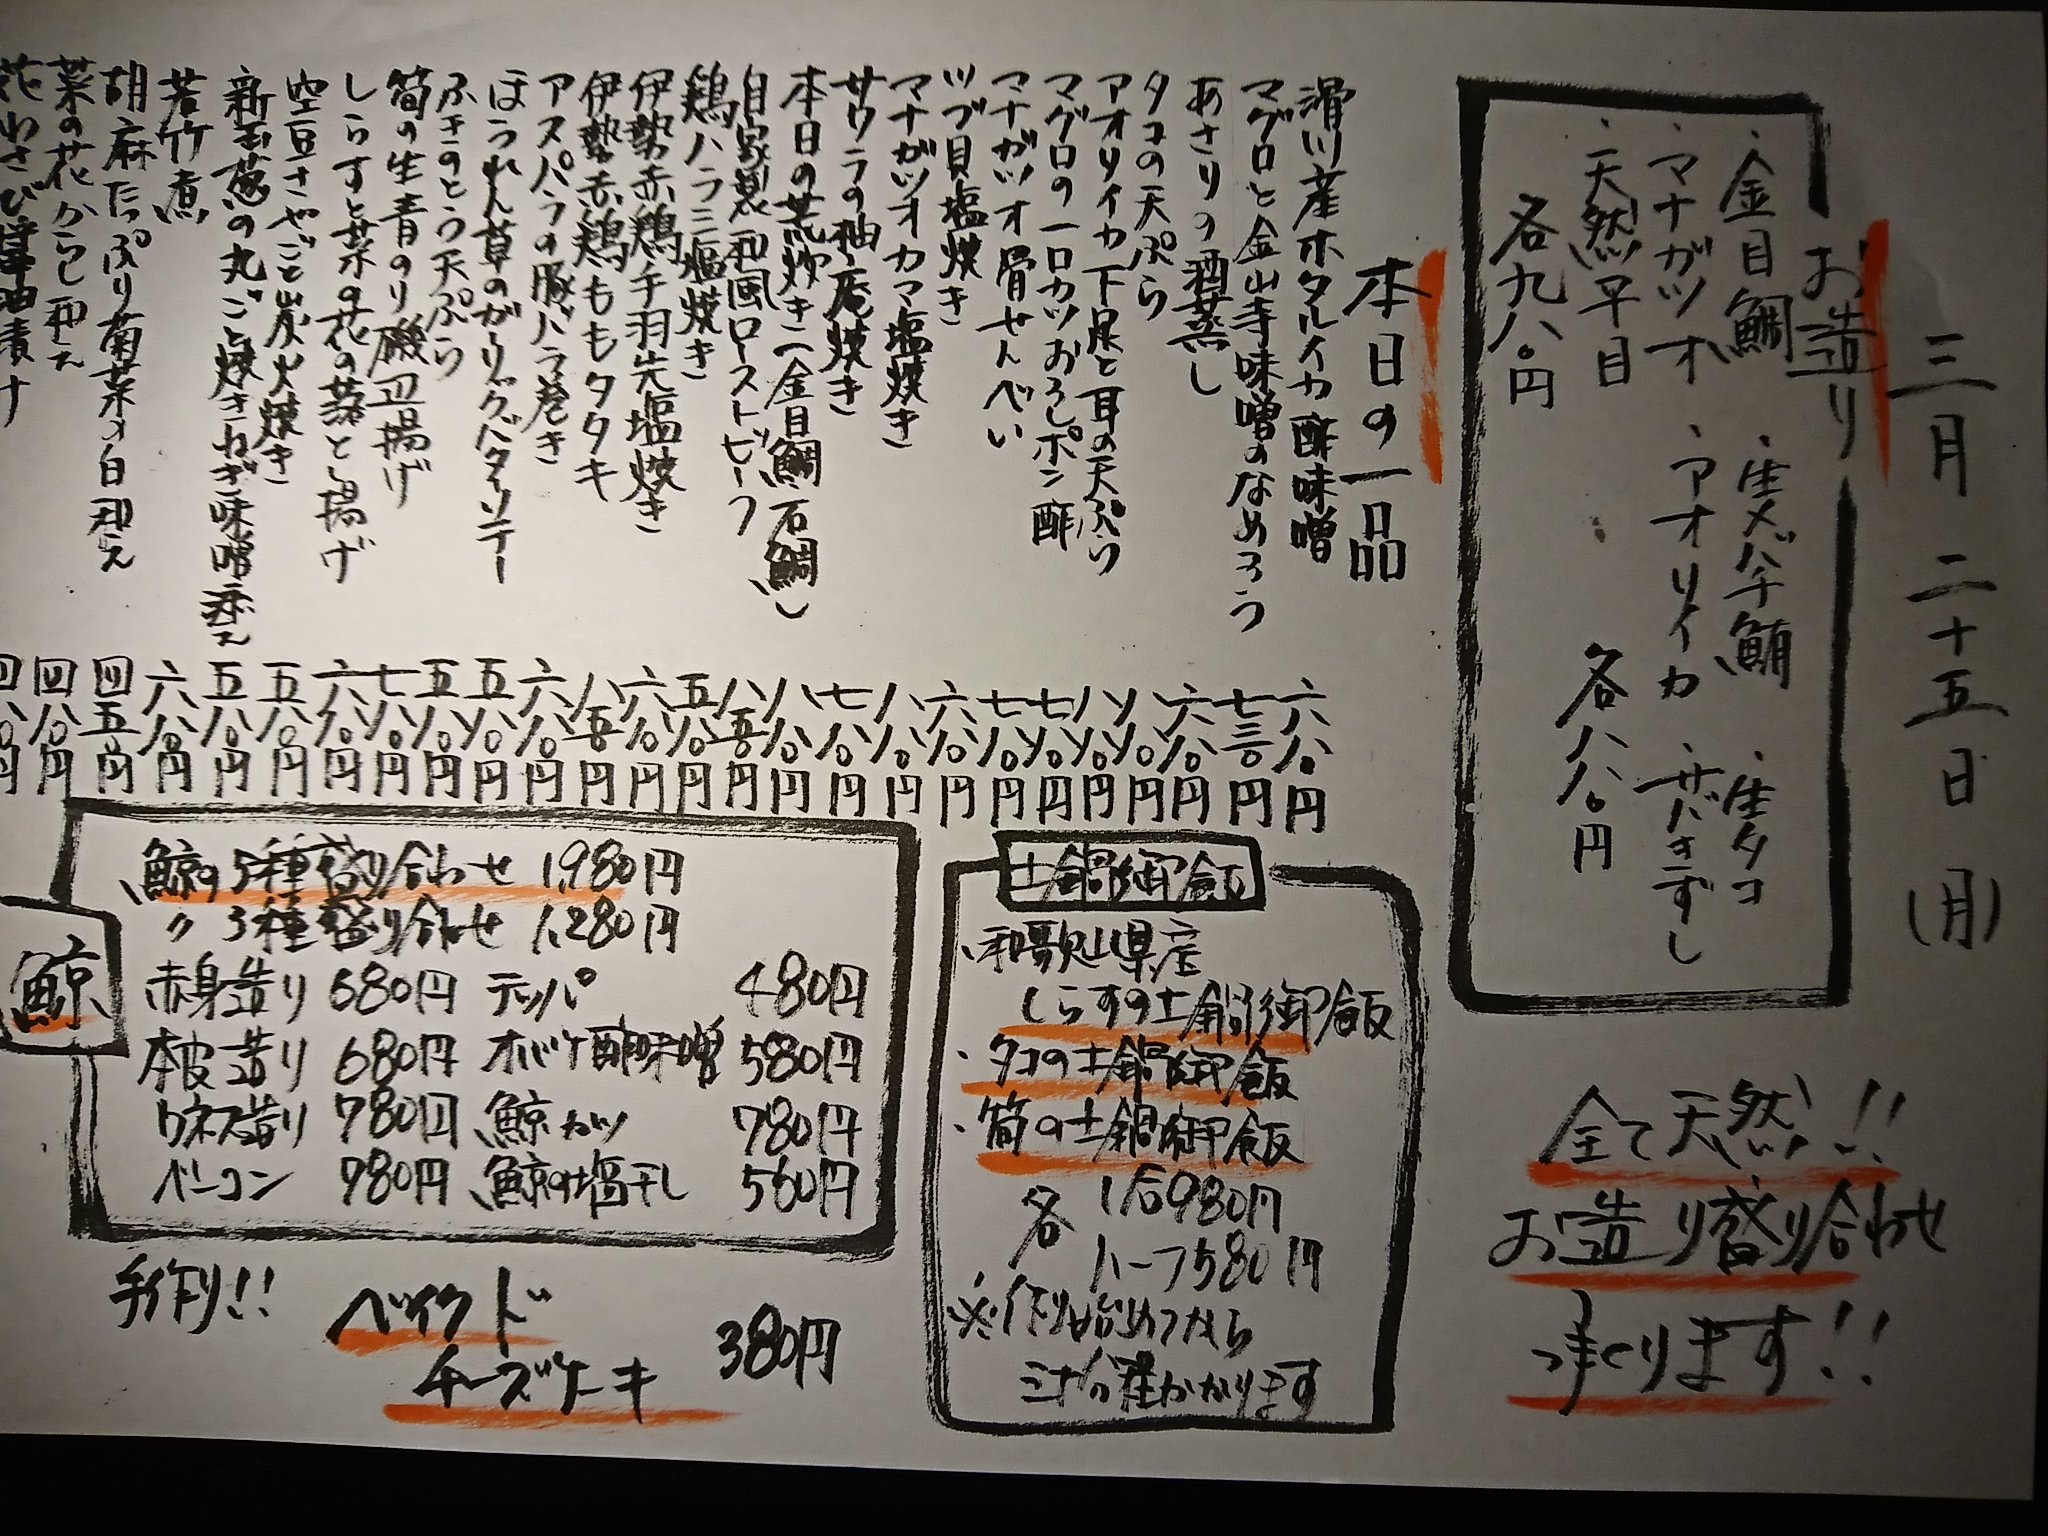 三月二十五日(月)
お造り
・金目鯛 ・生メバチ鮪 ・生タコ
・マナガツオ ・アオリイカ ・サバきずし
・天然平目 各八八〇円
各九八〇円
全て天然!!
お造り盛り合わせ
承ります!!
本日の一品
滑川産ホタルイカ酢味噌 六八〇円
マグロと金山寺味噌のなめろう 七三〇円
あさりの酒蒸し 六八〇円
タコの天ぷら 八八〇円
アオリイカ下足と耳の天ぷら 八八〇円
マグロの一口カツおろしポン酢 七八〇円
マナガツオ骨せんべい 七八〇円
ツブ貝塩焼き 六八〇円
マナガツオカマ塩焼き 八八〇円
サワラの柚庵焼き 七八〇円
本日の荒炊き(金目鯛、石鯛) 八八〇円
自家製和風ローストビーフ 八五〇円
鶏ハラミ塩焼き 五八〇円
伊勢赤鶏手羽先塩焼き 六八〇円
伊勢赤鶏ももタタキ 八五〇円
アスパラの豚バラ巻き 六八〇円
ほうれん草のガーリックバターソテー 五八〇円
ふきのとう天ぷら 五八〇円
筍の生青のり磯辺揚げ 七八〇円
しらすと菜の花の落とし揚げ 六八〇円
空豆さやごと炭火焼き 五八〇円
新玉葱の丸ごと焼きねぎ味噌添え 五八〇円
若竹煮 六八〇円
胡麻たっぷり菊菜の白和え 四五〇円
菜の花からし和え 四八〇円
花わさび醤油漬け 四八〇円
土鍋御飯
・和歌山県産
しらすの土鍋御飯
・タコの土鍋御飯
・筍の土鍋御飯
各 1合980円
ハーフ580円
※作り始めてから
三十分程かかります
鯨
鯨の5種盛り合わせ 1,980円
〃 3種盛り合わせ 1,280円
赤身造り 680円 テッパ 480円
本皮造り 680円 オバケ酢味噌 580円
ウネス造り 780円 鯨カツ 780円
ベーコン 980円 鯨の塩干し 560円
手作り!!
ベイクド
チーズケーキ 380円